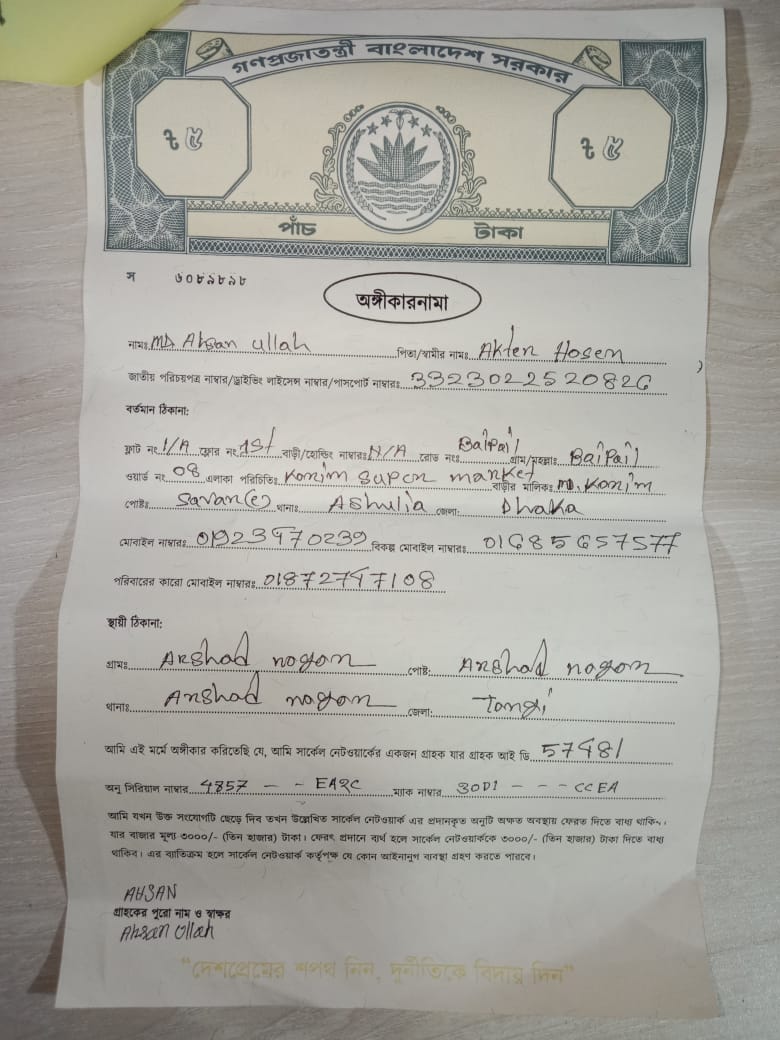 গণপ্রজাতন্ত্রী বাংলাদেশ সরকার
৳ ৫ ৳ ৫
পাঁচ টাকা
স ৬০৮৯৮৯৮
অঙ্গীকারনামা
নামঃ MD Ahsan Ullah পিতা/স্বামীর নামঃ Akter Hosen
জাতীয় পরিচয়পত্র নাম্বার/ড্রাইভিং লাইসেন্স নাম্বার/পাসপোর্ট নাম্বারঃ 3323022520826
বর্তমান ঠিকানা:
ফ্লাট নং 1/A ফ্লোর নং 1st বাড়ী/হোল্ডিং নাম্বারঃ N/A রোড নংঃ Baipail গ্রাম/মহল্লাঃ Baipail
ওয়ার্ড নং 08 এলাকা পরিচিতিঃ Konim Supen market বাড়ীর মালিকঃ MD. Konim
পোষ্টঃ Savan(e) থানাঃ Ashulia জেলা: Dhaka
মোবাইল নাম্বারঃ 01923970239 বিকল্প মোবাইল নাম্বারঃ 01685657577
পরিবারের কারো মোবাইল নাম্বারঃ 01872797108
স্থায়ী ঠিকানা:
গ্রামঃ Anshad nogon পোষ্ট: Anshad nogon
থানাঃ Anshad nogon জেলা: Tongi
আমি এই মর্মে অঙ্গীকার করিতেছি যে, আমি সার্কেল নেটওয়ার্কের একজন গ্রাহক যার গ্রাহক আই ডি 57481
অনু সিরিয়াল নাম্বার 4857 - - EA2C ম্যাক নাম্বার 30D1 - - - CCEA
আমি যখন উক্ত সংযোগটি ছেড়ে দিব তখন উল্লেখিত সার্কেল নেটওয়ার্ক এর প্রদানকৃত অনুটি অক্ষত অবস্থায় ফেরত দিতে বাধ্য থাকিব।
যার বাজার মূল্য ৩০০০/- (তিন হাজার) টাকা। ফেরৎ প্রদানে ব্যর্থ হলে সার্কেল নেটওয়ার্ককে ৩০০০/- (তিন হাজার) টাকা দিতে বাধ্য
থাকিব। এর ব্যতিক্রম হলে সার্কেল নেটওয়ার্ক কর্তৃপক্ষ যে কোন আইনানুগ ব্যবস্থা গ্রহণ করতে পারবে।
AHSAN
গ্রাহকের পুরো নাম ও স্বাক্ষর
Ahsan Ullah
"দেশপ্রেমের শপথ নিন, দুর্নীতিকে বিদায় দিন"